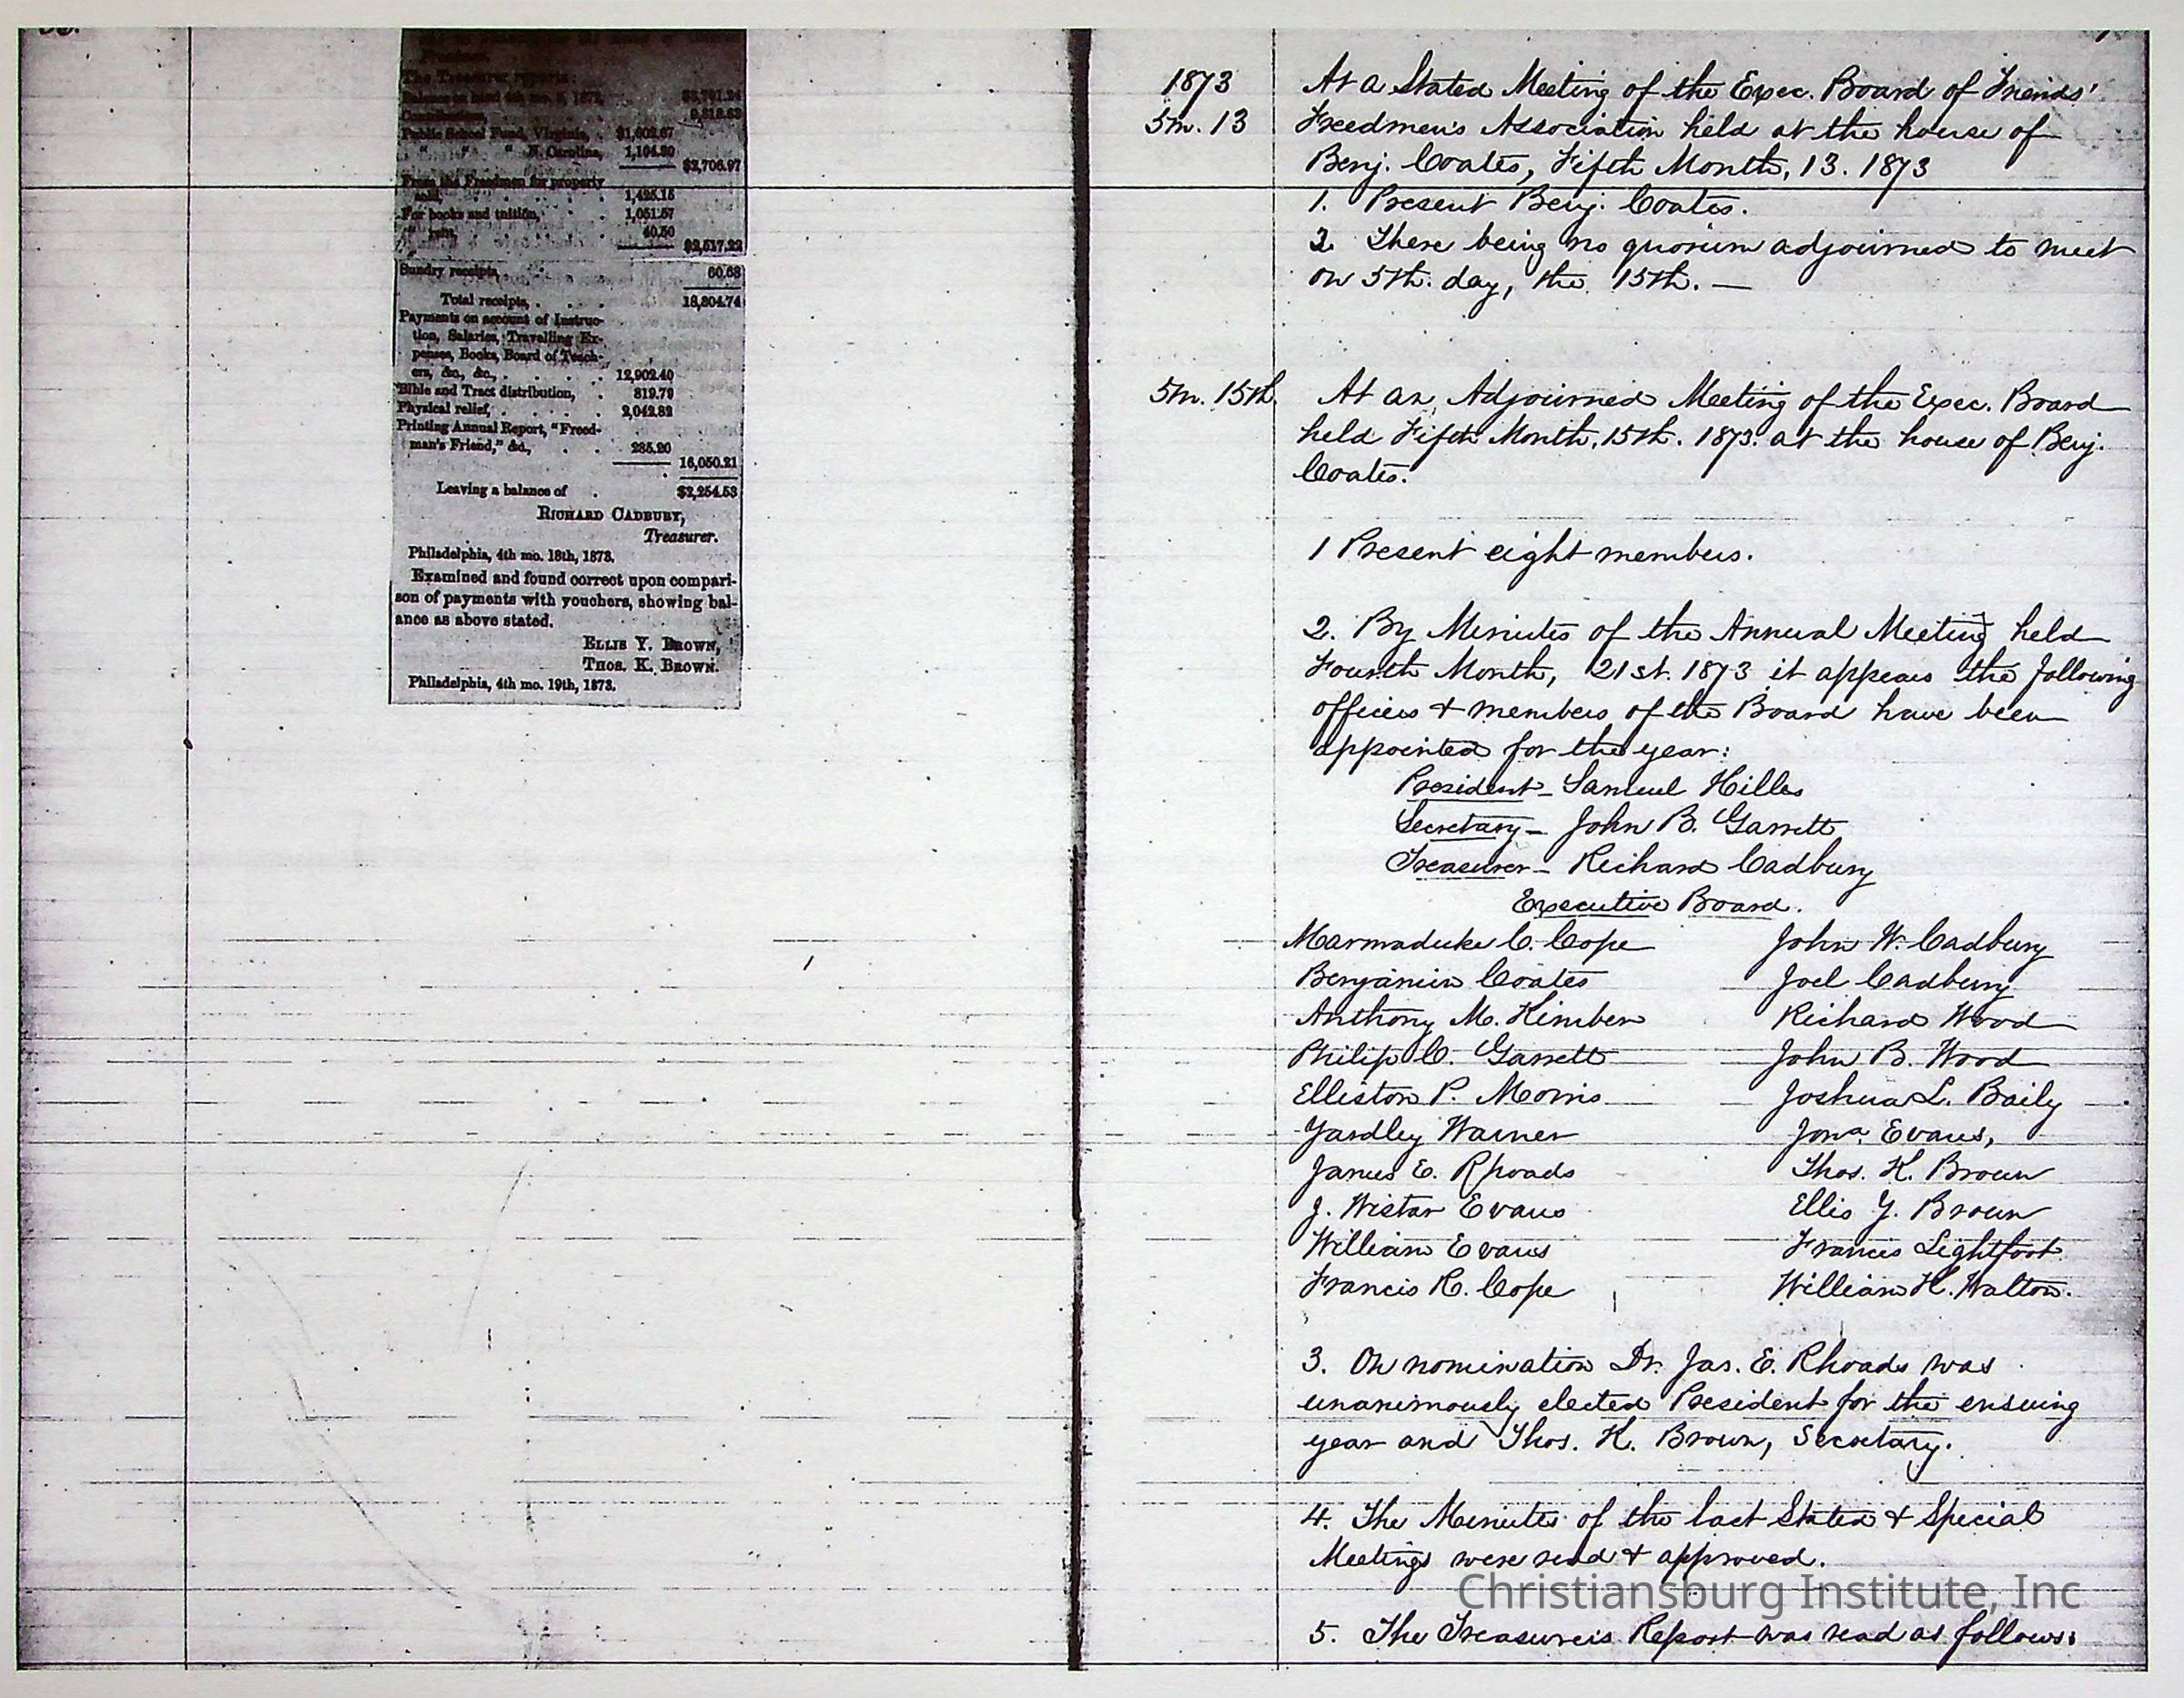 Freedmen.
The Treasurer reports:
Balance on hand 4th mo. 1872,
Contributions,
Public School Fund, Virginia, . $1,602.67
" " " N. Carolina, 1,104.30
$2,706.97
From the Freedmen for property
sold, . . . . . 1,425.15
For books and tuition, . . 1,051.57
" rent, . . . . 40.50
$2,517.22
Sundry receipts, . . 60.68
Total receipts, . . . . 18,304.74
Payments on account of Instruc-
tion, Salaries, Travelling Ex-
penses, Books, Board of Teach-
ers, &c., &c., . . . . . 12,902.40
Bible and Tract distribution, . 819.79
Physical relief, . . . . . 2,042.82
Printing Annual Report, "Freed-
man's Friend," &c., . . 285.20
16,050.21
Leaving a balance of . $2,254.53
Richard Cadbury,
Treasurer.
Philadelphia, 4th mo. 18th, 1873.
Examined and found correct upon compari-
son of payments with vouchers, showing bal-
ance as above stated.
Ellis Y. Brown,
Thos. K. Brown.
Philadelphia, 4th mo. 19th, 1873.
1873 At a Stated Meeting of the Exec. Board of Friends'
5m. 13 Freedmen's Association held at the house of
Benj. Coates, Fifth Month, 13. 1873
1. Present Benj. Coates.
2. There being no quorum adjourned to meet
on 5th. day, the 15th. —
5m. 15th. At an Adjourned Meeting of the Exec. Board
held Fifth Month, 15th. 1873. at the house of Benj.
Coates.
1 Present eight members.
2. By Minutes of the Annual Meeting held
Fourth Month, 21st. 1873 it appears the following
officers & members of the Board have been
appointed for the year:
President - Samuel Hilles
Secretary - John B. Garrett
Treasurer - Richard Cadbury
Executive Board.
Marmaduke C. Cope John W. Cadbury
Benjamin Coates Joel Cadbury
Anthony M. Kimber Richard Wood
Philip C. Garrett John B. Wood
Elliston P. Morris Joshua L. Baily
Yardley Warner Jona. Evans,
James E. Rhoads Thos. K. Brown
J. Wistar Evans Ellis Y. Brown
William Evans Francis Lightfoot
Francis R. Cope William K. Walton.
3. On nomination Dr. Jas. E. Rhoads was
unanimously elected President for the ensuing
year and Thos. K. Brown, Secretary.
4. The Minutes of the last Stated & Special
Meetings were read & approved.
Christiansburg Institute, Inc
5. The Treasurer's Report was read as follows: